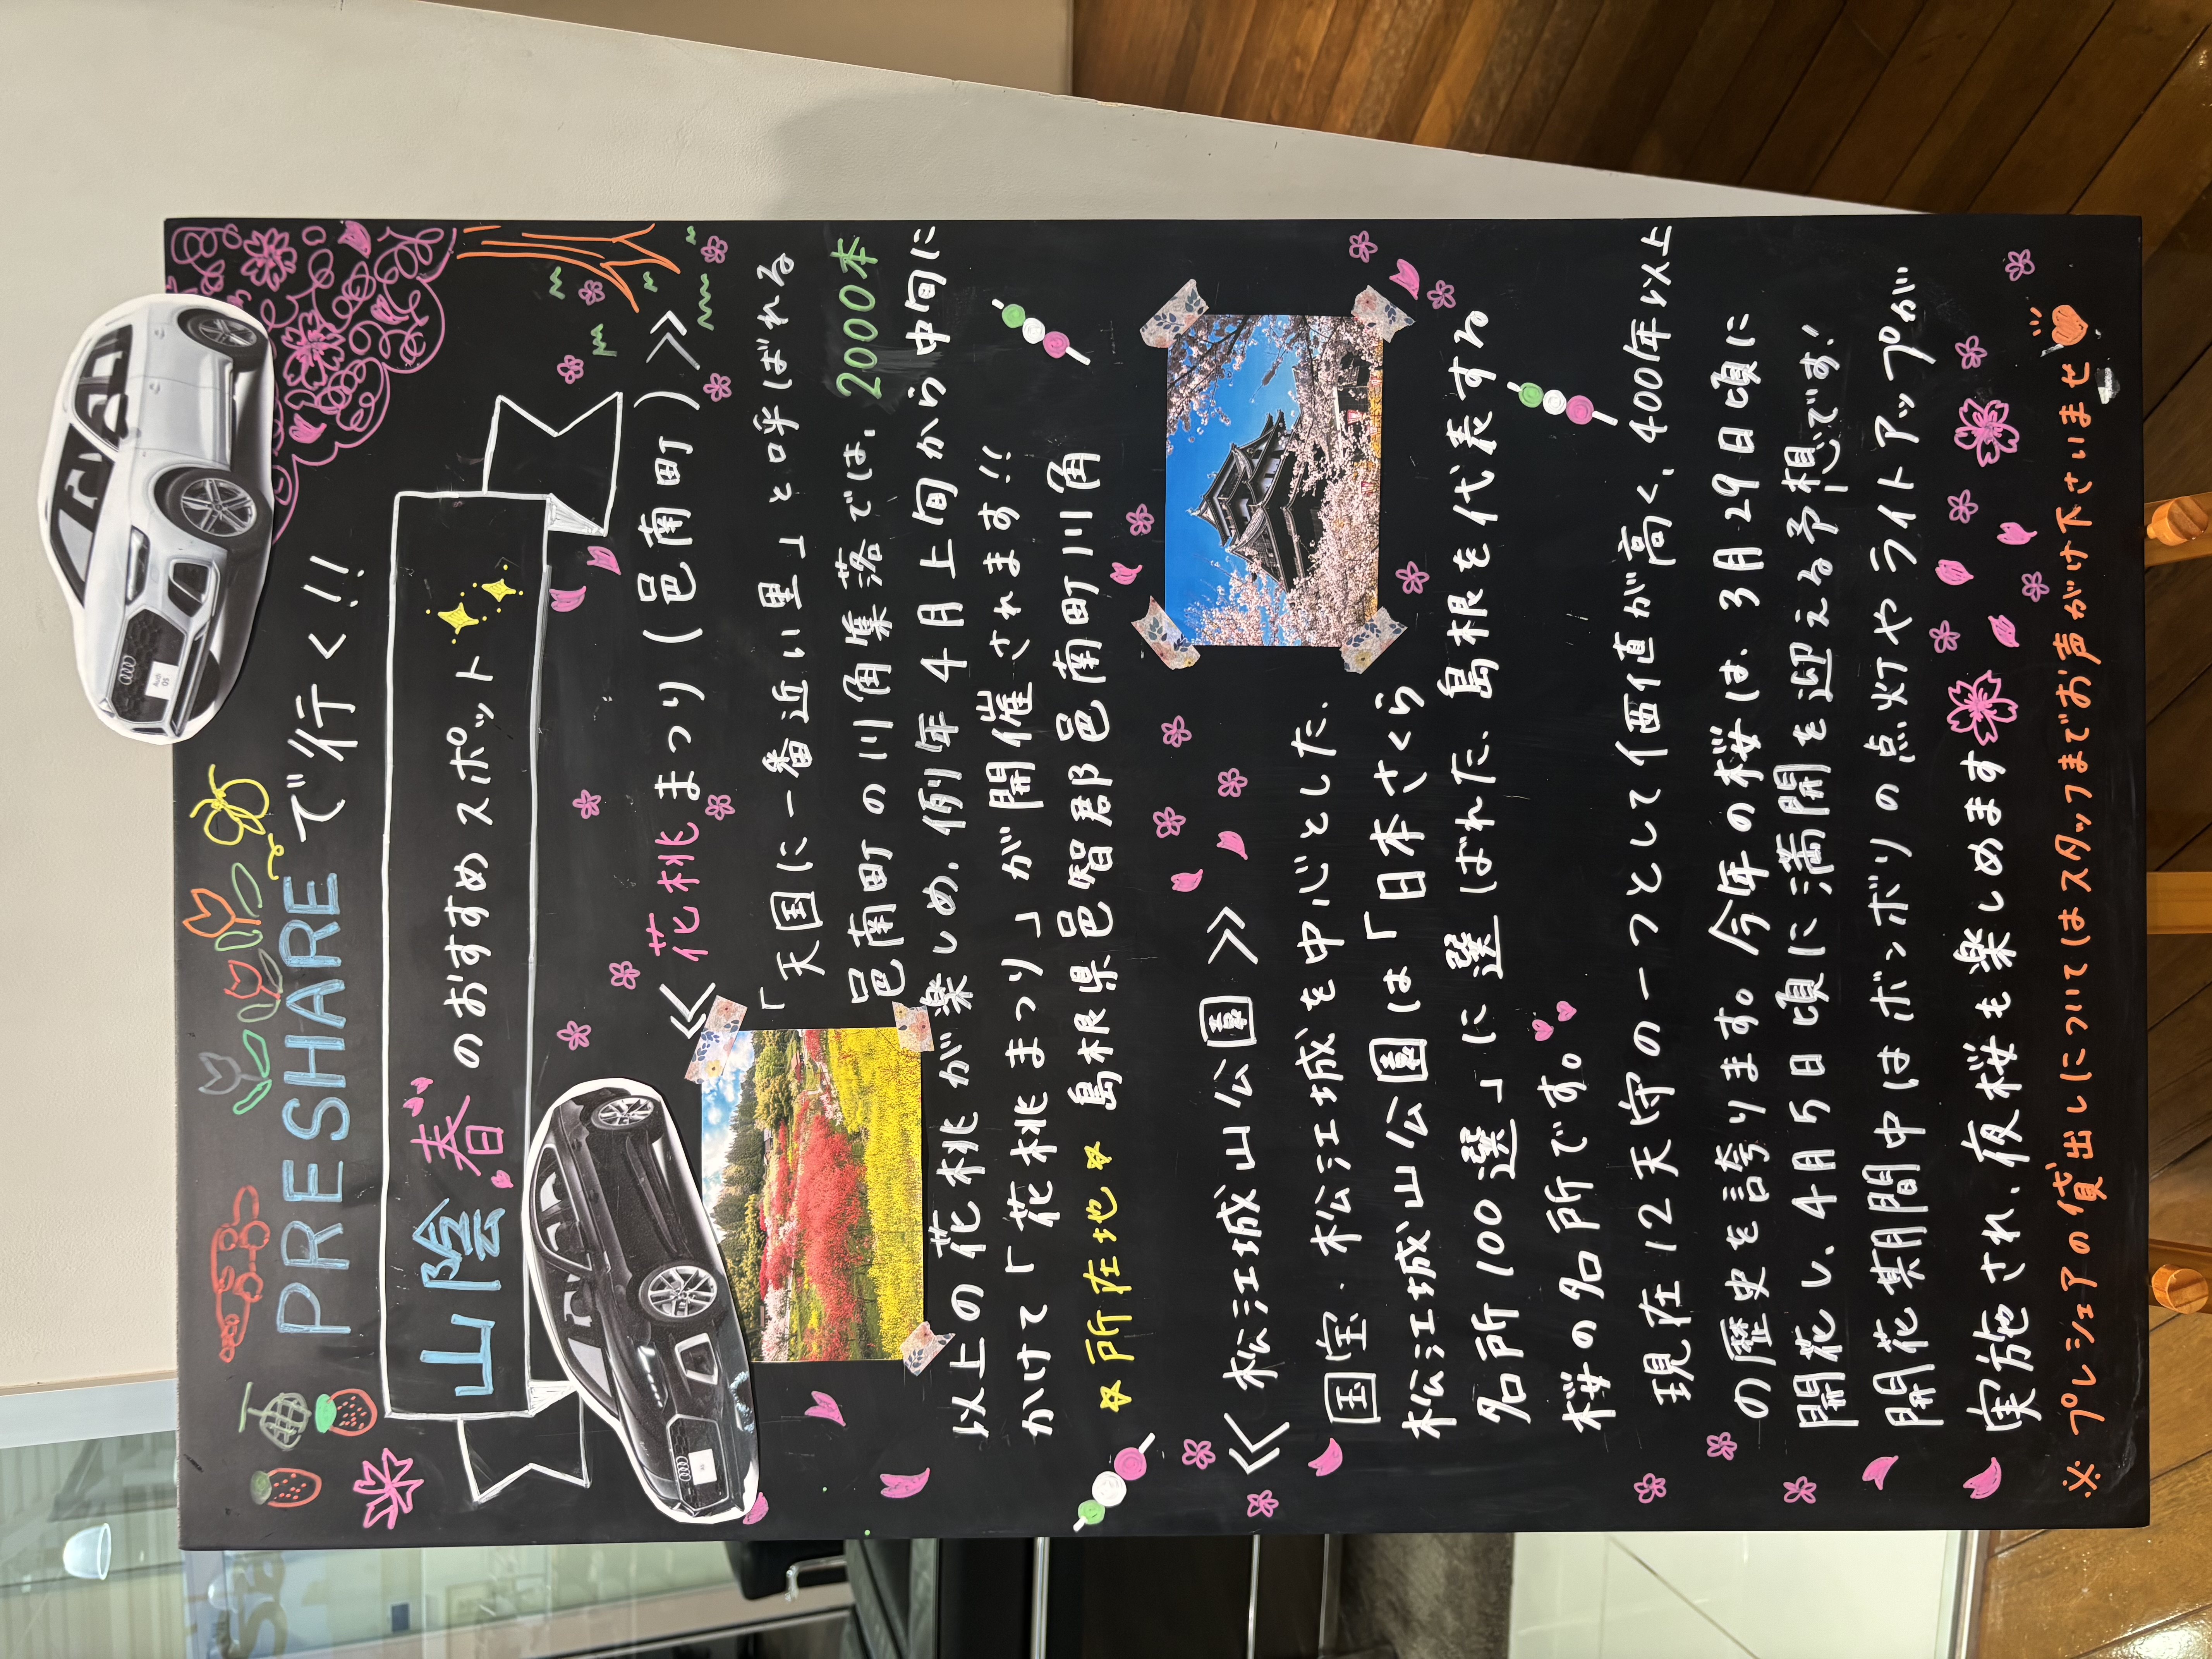 PRESHAREで行く!!
山陰 春 のおすすめスポット
≪ 花桃まつり(邑南町) ≫
「天国に一番近い里」と呼ばれる
邑南町の川角集落では、2000本
以上の花桃が楽しめ、例年4月上旬から中旬に
かけて「花桃まつり」が開催されます!!
☆所在地☆ 島根県邑智郡邑南町川角
≪ 松江城山公園 ≫
国宝・松江城を中心とした、
松江城山公園は「日本さくら
名所100選」に選ばれた、島根を代表する
桜の名所です。
現在12天守の一つとして価値が高く、400年以上
の歴史を誇ります。今年の桜は、3月29日頃に
開花し、4月5日頃に満開を迎える予想です!
開花期間中はボンボリの点灯やライトアップが
実施され、夜桜も楽しめます
※プレシェアの貸出しについてはスタッフまでお声がけ下さいませ